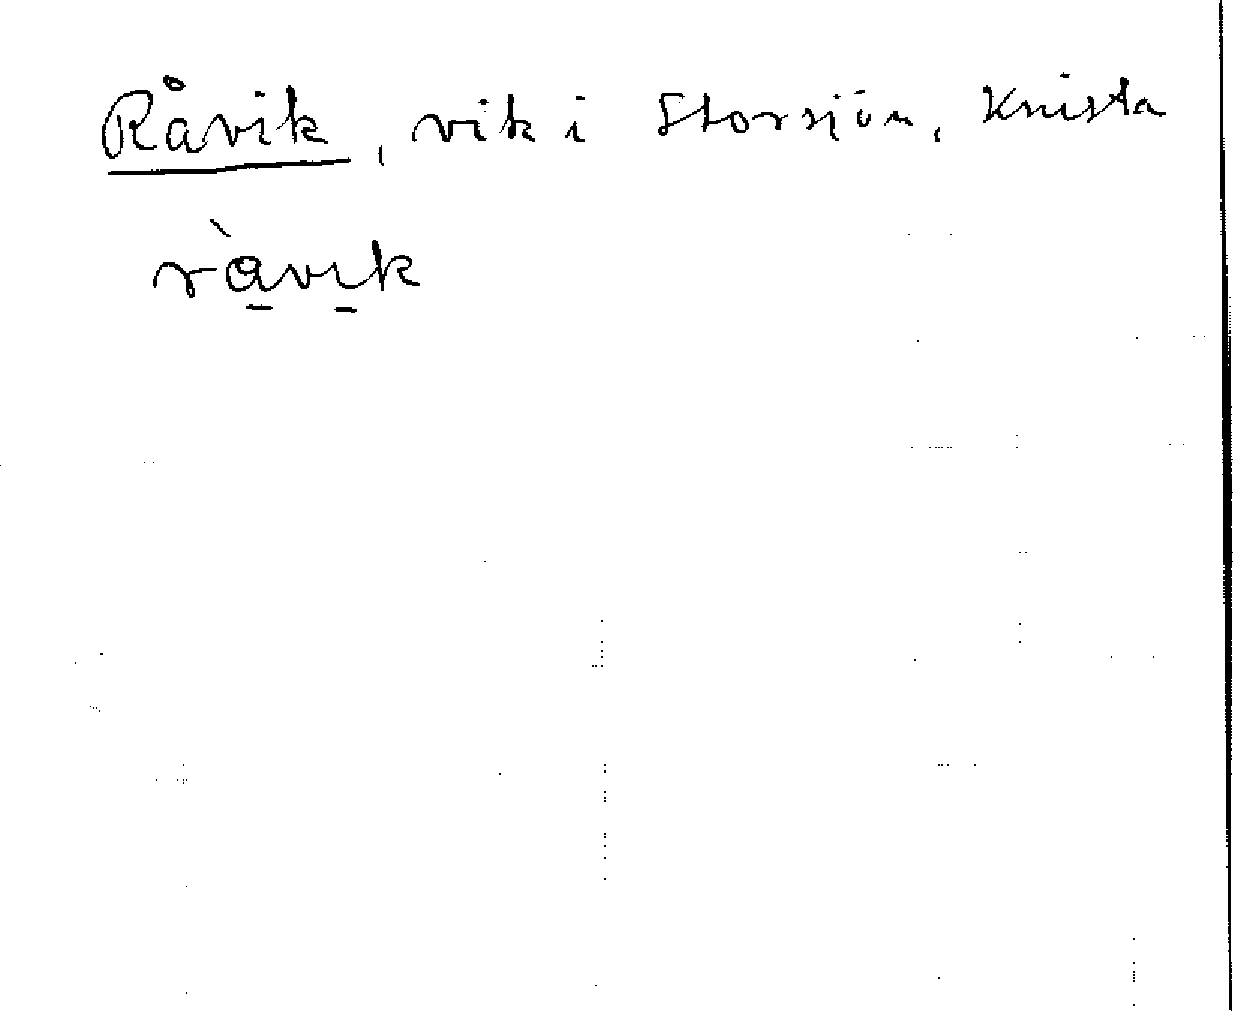 Råvik, vik i Storsjön, Knista
rà̱vi̱k